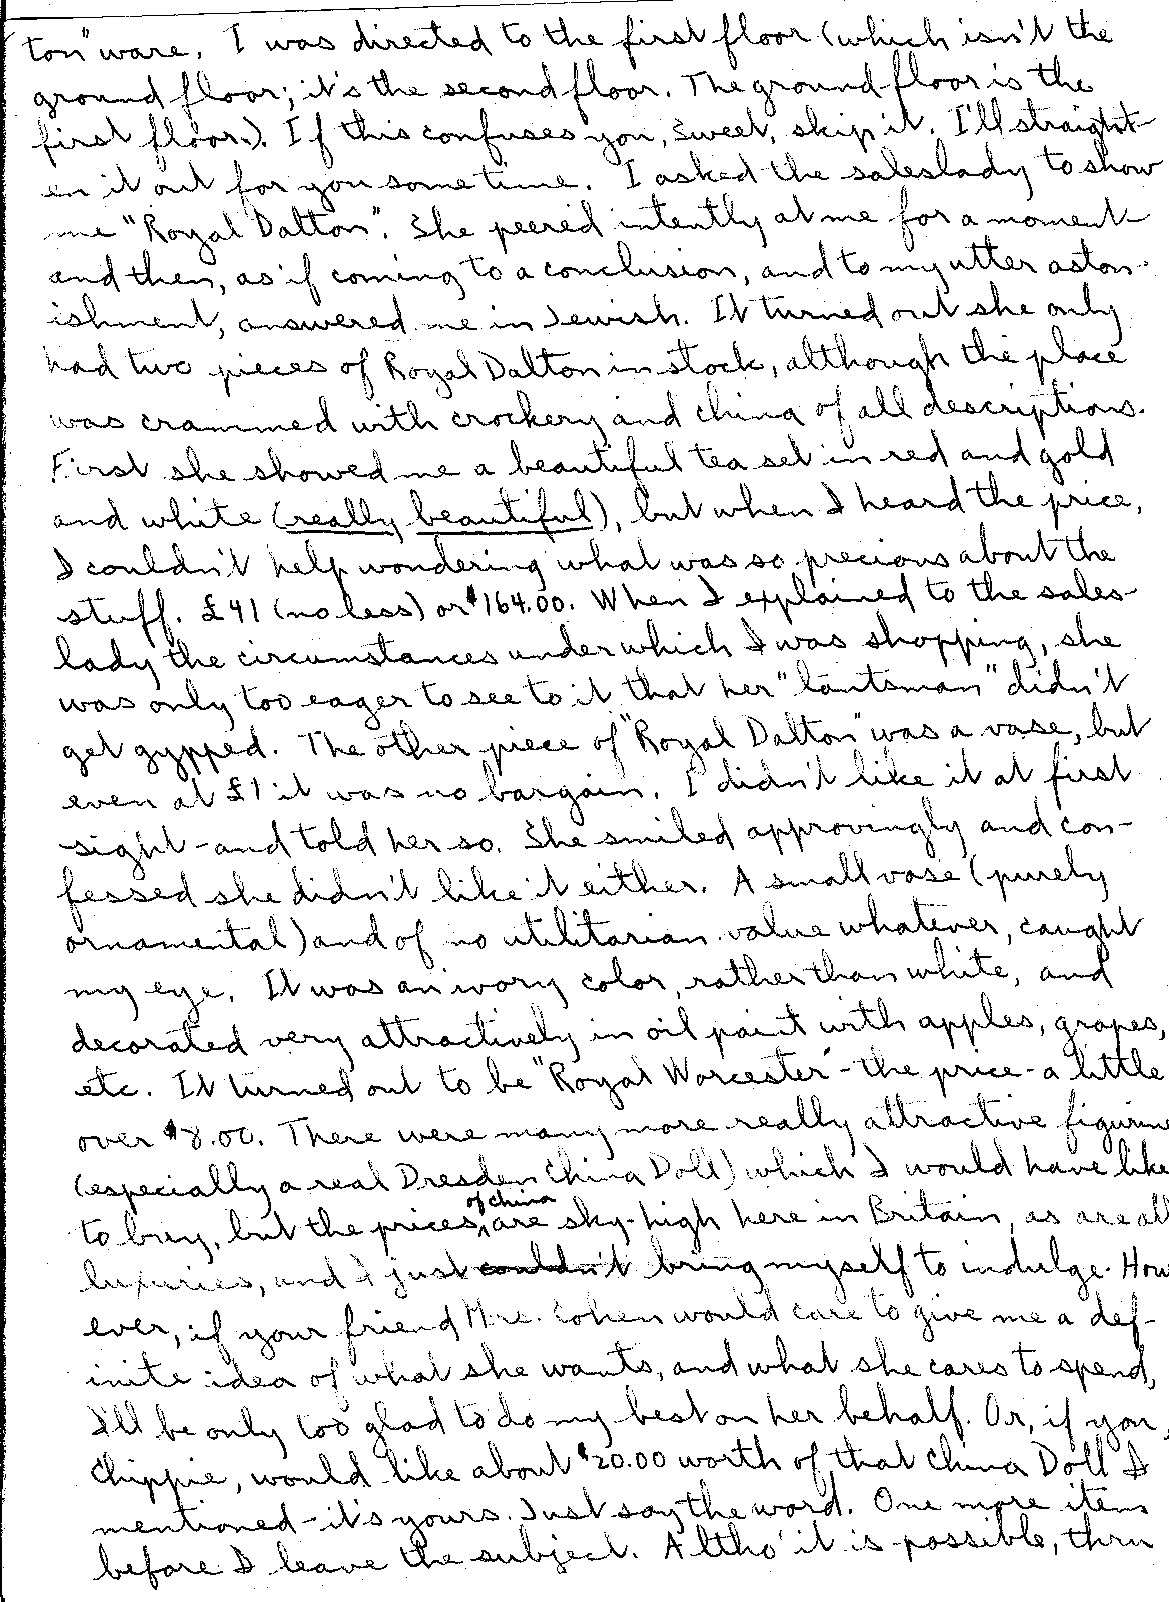 ton" ware. I was directed to the first floor (which isn't the
ground floor; it's the second floor. The ground floor is the
first floor.). If this confuses you, Sweet, skip it. I'll straight-
en it out for you sometime. I asked the saleslady to show
me "Royal Dalton". She peered intently at me for a moment
and then, as if coming to a conclusion, and to my utter aston-
ishment, answered me in Jewish. It turned out she only
had two pieces of Royal Dalton in stock, although the place
was crammed with crockery and china of all descriptions.
First she showed me a beautiful tea set in red and gold
and white (really beautiful), but when I heard the price,
I couldn't help wondering what was so precious about the
stuff. £41 (no less) or $164.00. When I explained to the sales-
lady the circumstances under which I was shopping, she
was only too eager to see to it that her "lantsman" didn't
get gypped. The other piece of "Royal Dalton" was a vase, but
even at £1 it was no bargain. I didn't like it at first
sight - and told her so. She smiled approvingly and con-
fessed she didn't like it either. A small vase (purely
ornamental) and of no utilitarian value whatever, caught
my eye. It was an ivory color, rather than white, and
decorated very attractively in oil paint with apples, grapes,
etc. It turned out to be "Royal Worcester" - the price - a little
over $8.00. There were many more really attractive figurin
(especially a real Dresden China Doll) which I would have like
to buy, but the prices of china are sky-high here in Britain, as are all
luxuries, and I just couldn't bring myself to indulge. How
ever, if your friend Mrs. Cohen would care to give me a def-
inite idea of what she wants, and what she cares to spend,
I'll be only too glad to do my best on her behalf. Or, if you,
Chippie, would like about $20.00 worth of that China Doll I
mentioned - it's yours. Just say the word. One more item
before I leave the subject. Altho' it is possible, thru